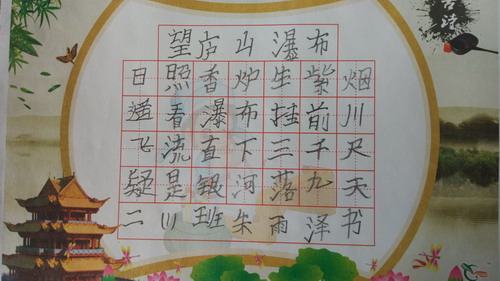 望庐山瀑布
日照香炉生紫烟
遥看瀑布挂前川
飞流直下三千尺
疑是银河落九天
二(1)班朱雨泽书